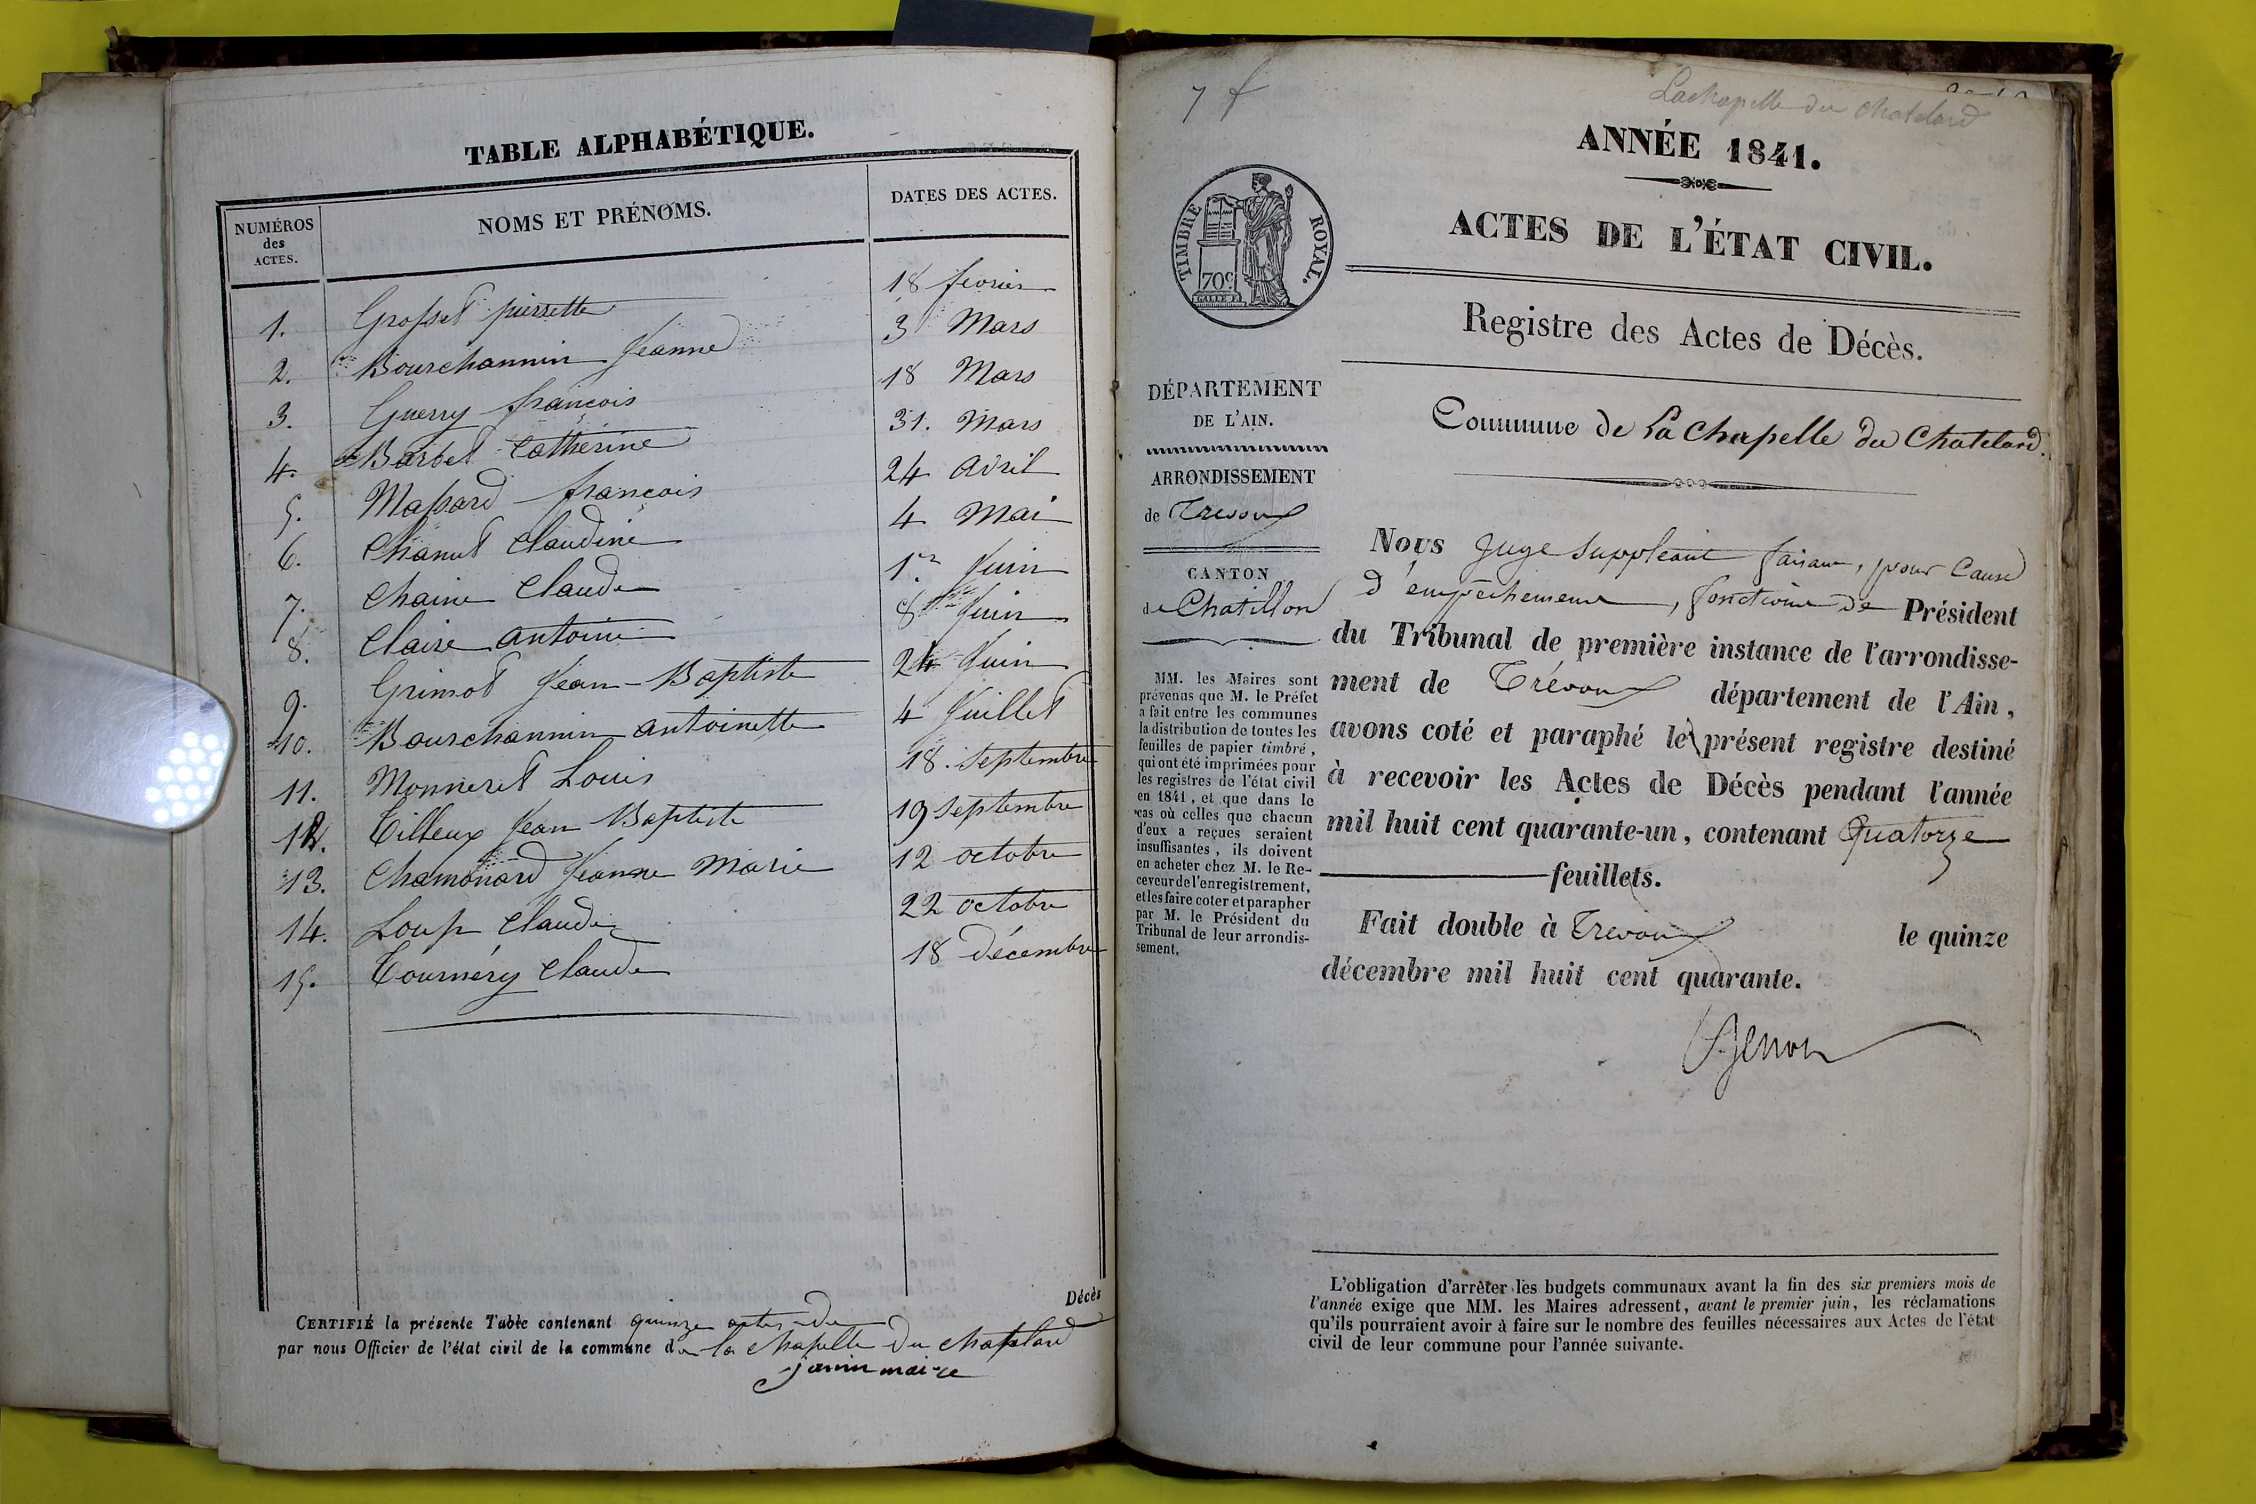 TABLE ALPHABÉTIQUE.
NUMÉROS des ACTES.
NOMS ET PRÉNOMS.
DATES DES ACTES.
1. Grosset pierrette 18 fevrier
2. Bourchannin Jeanne 3 Mars
3. Guerry françois 18 Mars
4. Barbet Catherine 31. Mars
5. Massard françois 24 avril
6. Chanut Claudine 4 Mai
7. Chaine Claude 1er Juin
8. Claire antoine 8 Juin
9. Grimot Jean-Baptiste 24 Juin
10. Bourchannin antoinette 4 Juillet
11. Monneret Louis 18. septembre
12. Tilleux Jean Baptiste 19 septembre
13. Chamonard Jeanne Marie 12 octobre
14. Loup Claude 22 octobre
15. Tournéry Claude 18 décembre
CERTIFIÉ la présente Table contenant quinze actes de Décès
par nous Officier de l'état civil de la commune de la chapelle du chatelard
janin maire
7 f
Lachapelle du Chatelard
ANNÉE 1841.
TIMBRE ROYAL.
70c
ACTES DE L'ÉTAT CIVIL.
Registre des Actes de Décès.
DÉPARTEMENT
DE L'AIN.
ARRONDISSEMENT
de Trevoux
CANTON
de Chatillon
MM. les Maires sont
prévenus que M. le Préfet
a fait entre les communes
la distribution de toutes les
feuilles de papier timbré,
qui ont été imprimées pour
les registres de l'état civil
en 1841, et que dans le
cas où celles que chacun
d'eux a reçues seraient
insuffisantes, ils doivent
en acheter chez M. le Re-
ceveur de l'enregistrement,
et les faire coter et parapher
par M. le Président du
Tribunal de leur arrondis-
sement.
Commune de La Chapelle du Chatelard.
Nous Juge Suppléant faisant, pour Cause
d'empêchement, fonctions de Président
du Tribunal de première instance de l'arrondisse-
ment de Trévoux département de l'Ain,
avons coté et paraphé le présent registre destiné
à recevoir les Actes de Décès pendant l'année
mil huit cent quarante-un, contenant Quatorze
feuillets.
Fait double à Trevoux le quinze
décembre mil huit cent quarante.
L'obligation d'arrêter les budgets communaux avant la fin des six premiers mois de
l'année exige que MM. les Maires adressent, avant le premier juin, les réclamations
qu'ils pourraient avoir à faire sur le nombre des feuilles nécessaires aux Actes de l'état
civil de leur commune pour l'année suivante.